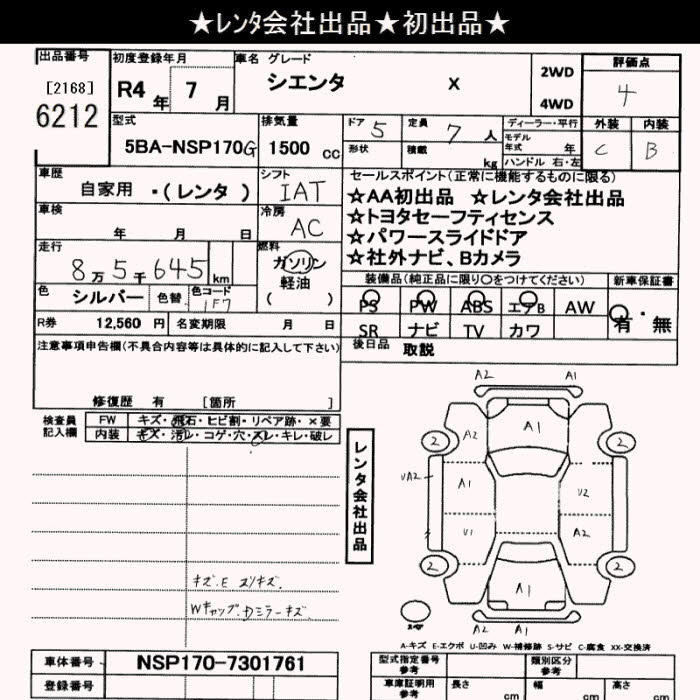 ★ﾚﾝﾀ会社出品★初出品★
出品番号 初度登録年月 車名 グレード 評価点
[2168] R4年 7月 シエンタ X 2WD 4
6212 4WD
型式 排気量 ドア 5 定員 7人 ディーラー・平行 外装 内装
5BA-NSP170G 1500 cc 形状 積載 kg モデル年式 年 C B
ハンドル 右・左
車歴 シフト セールスポイント(正常に機能するものに限る)
自家用 ・(レンタ) IAT ☆AA初出品 ☆レンタ会社出品
車検 冷房 ☆トヨタセーフティセンス
年 月 日 AC ☆パワースライドドア
走行 燃料 ☆社外ナビ、Bカメラ
8万5千645km ガソリン
軽油
( )
装備品(純正品に限り○をつけてください) 新車保証書
色 シルバー 色替 色コード 1F7 PS PW ABS エアB AW 有・無
R券 12,560 円 名変期限 月 日 SR ナビ TV カワ
注意事項申告欄(不具合内容等は具体的に記入して下さい) 後日品 取説
修復歴 有 [箇所 ]
検査員記入欄 FW キズ・飛石・ヒビ割・リペア跡・×要
内装 キズ・汚レ・コゲ・穴・スレ・キレ・破レ
レンタ会社出品
A2 A1
A1
2 A2 2
UA2 A1 U2
U1 A2
2 A1 2
A2 A1
キズ.E スリキズ.
Wキャップ.Dミラーキズ.
A-キズ E-エクボ U-凹み W-補修跡 S-サビ C-腐食 XX-交換済
車体番号 NSP170-7301761 型式指定番号 参考 類別区分 参考
登録番号 車庫証明用 参考 長さ cm 幅 cm 高さ cm